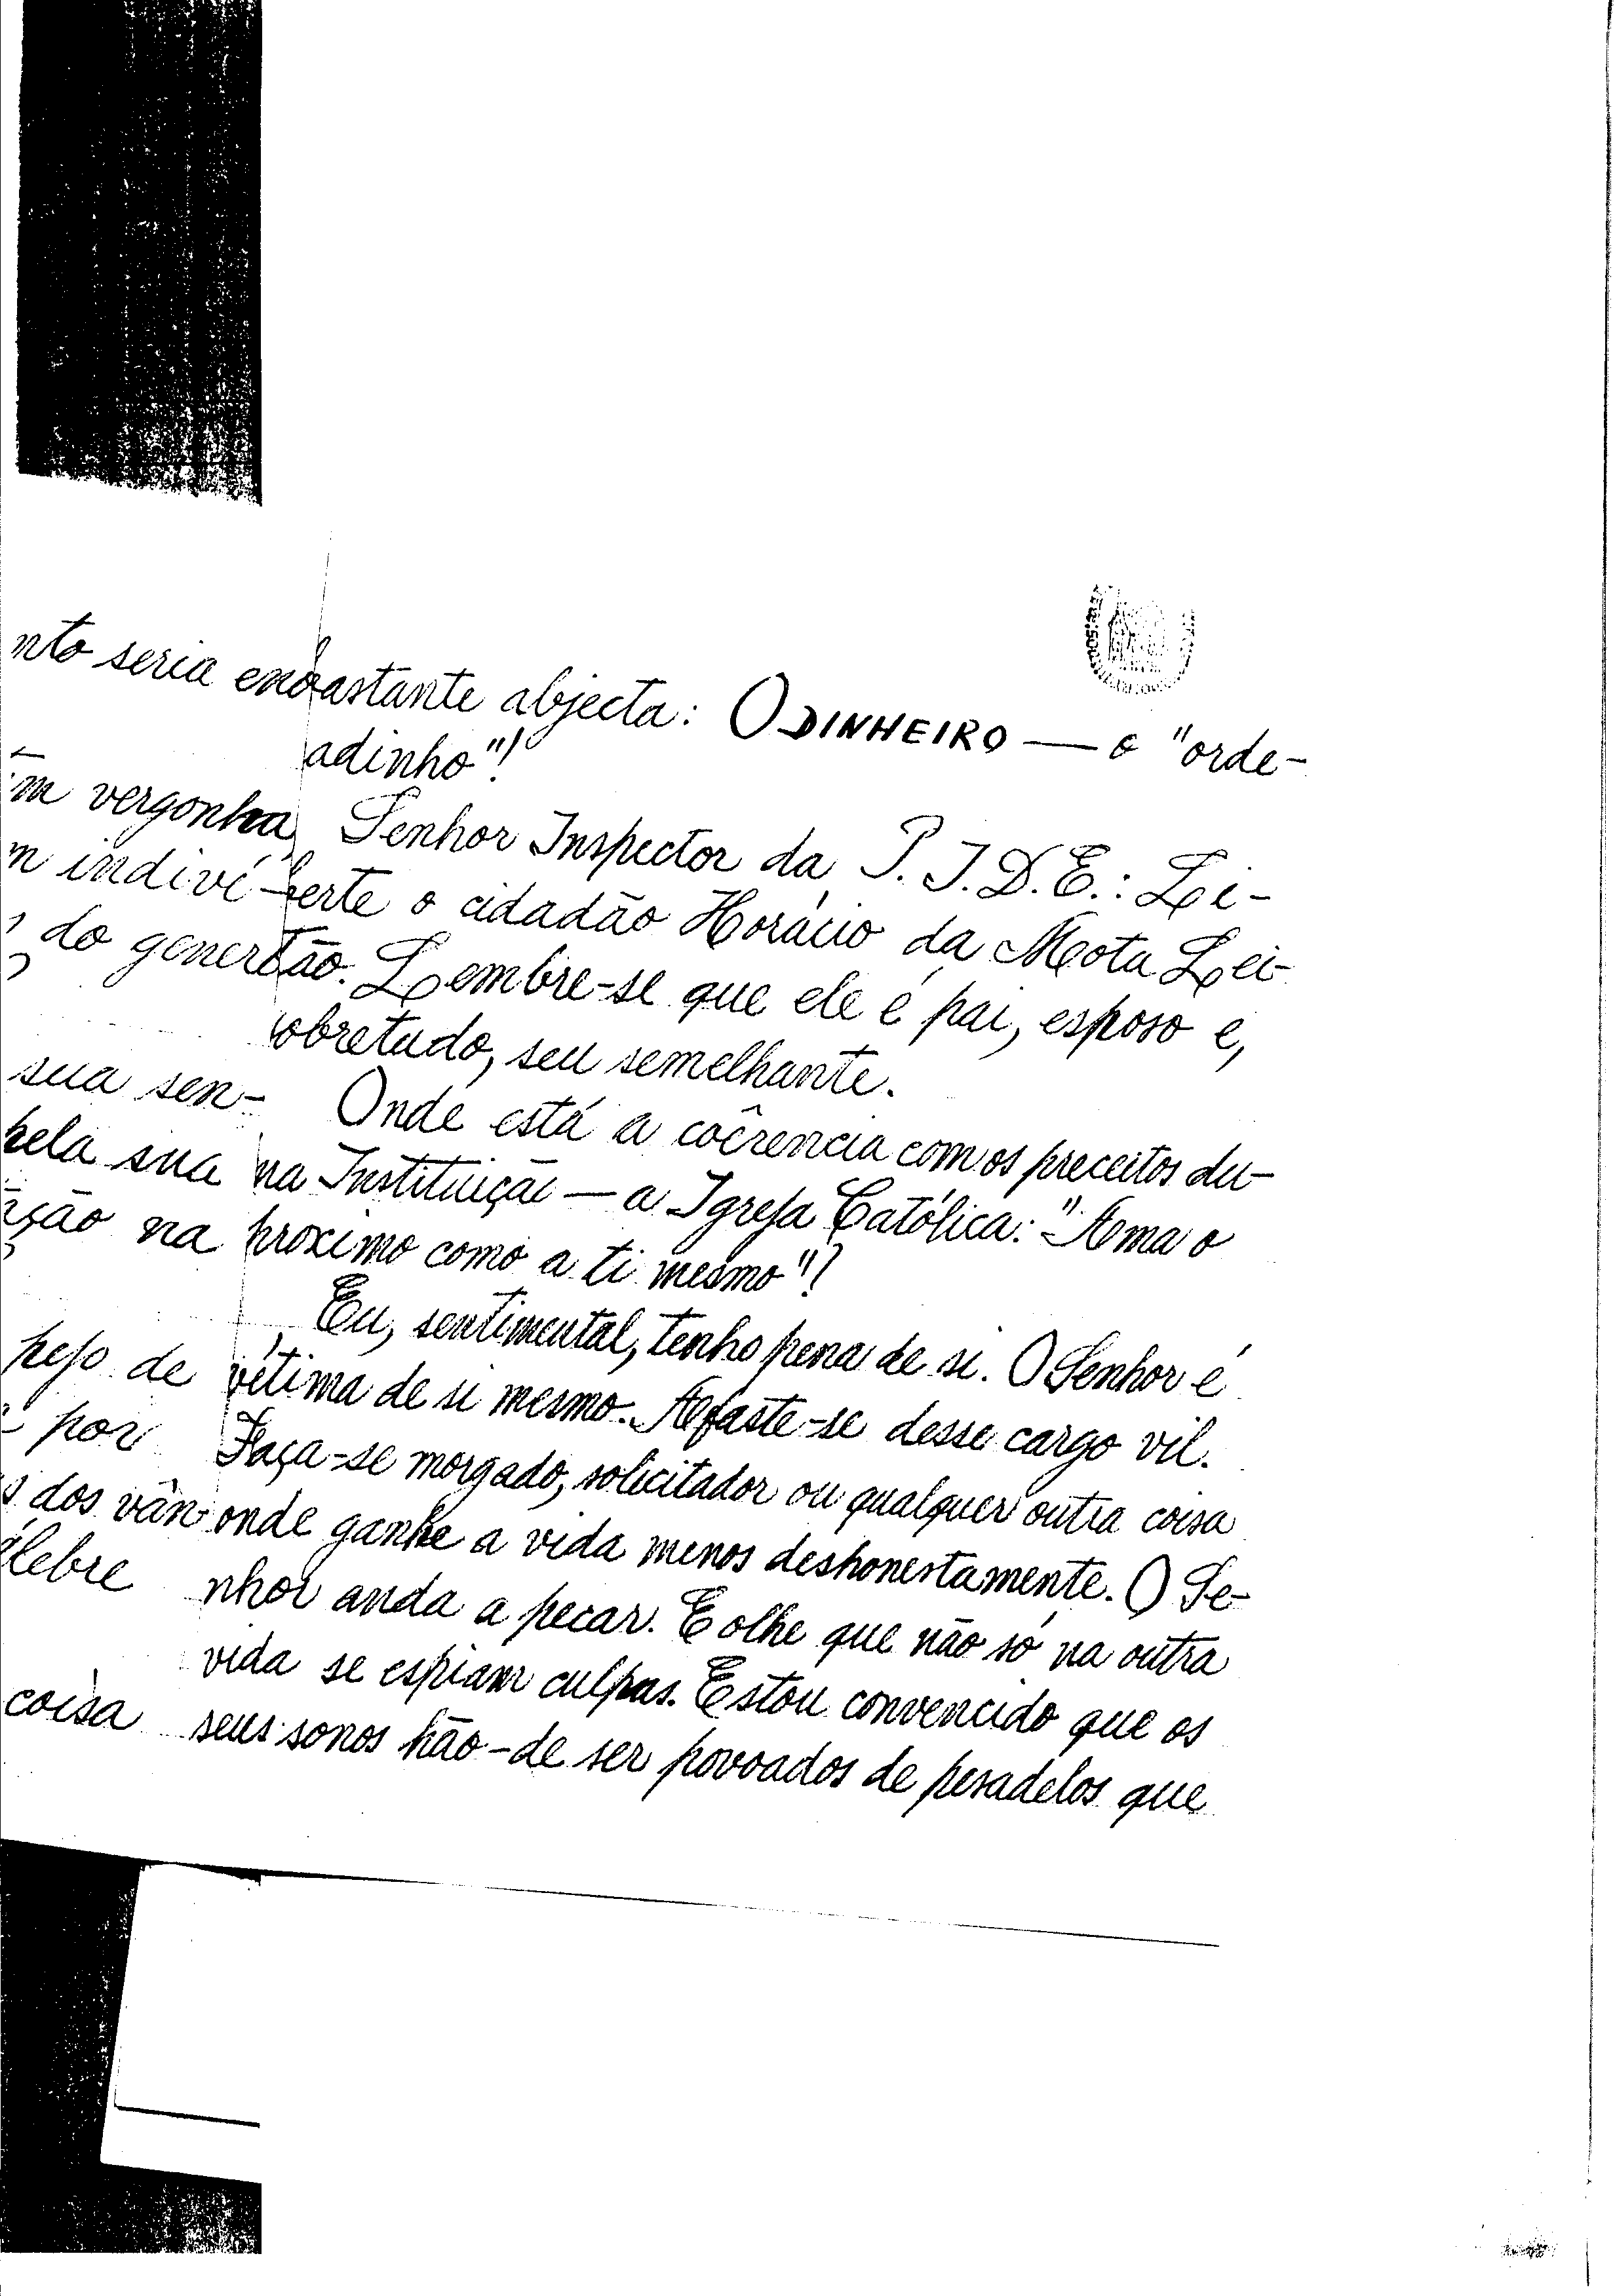 nto seria en
m vergonha
m indiví-
do gener
sua sen-
pela sua
ição na
pejo de
por
dos vân
élebre
coisa
bastante abjecta: O DINHEIRO — o "orde-
adinho"!
Senhor Inspector da P.I.D.E.: Li-
berte o cidadão Horácio da Mota Lei-
tão. Lembre-se que ele é pai, esposo e,
sobretudo, seu semelhante.
Onde está a coêrencia com os preceitos du-
ma Instituição — a Igreja Católica: "Ama o
proximo como a ti mesmo"?
Eu, sentimental, tenho pena de si. O Senhor é
vítima de si mesmo. Afaste-se desse cargo vil.
Faça-se morgado, solicitador ou qualquer outra coisa
onde ganhe a vida menos deshonestamente. O Se-
nhor anda a pecar. E olhe que não só na outra
vida se espiam culpas. Estou convencido que os
seus sonos hão-de ser povoados de pesadelos que